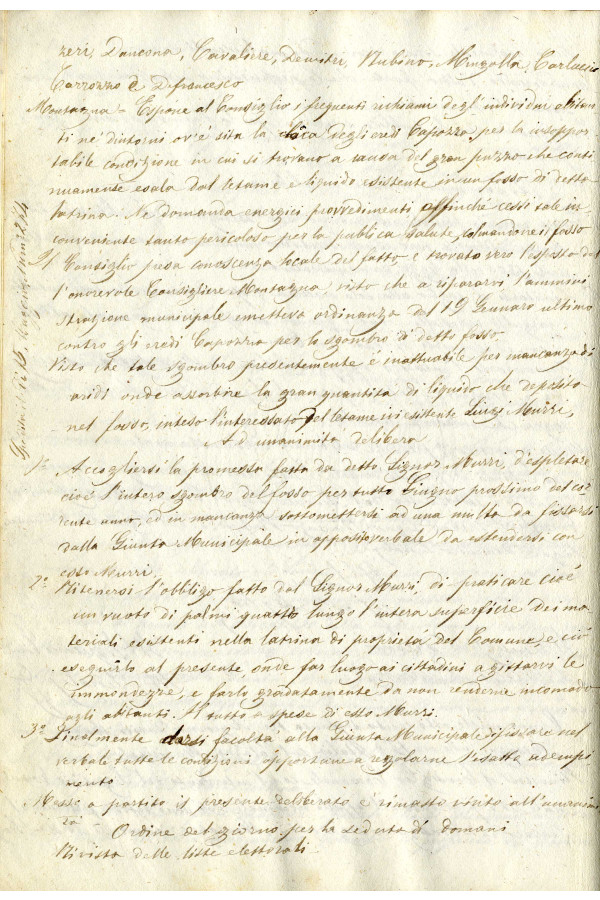 zeri, Dancona, Cavaliere, Demitri, Rubino, Mingolla, Carluccio
Carrozzo e Defrancesco
Montagna = Espone al Consiglio i frequenti richiami degl'individui abitan
ti ne' dintorni ov'è sita la degli eredi Capozza, per la insoppor
tabile condizione in cui si trovano a causa del gran puzzo che conti
nuamente esala dal letame e liquido esistente in un fosso di detta
latrina. Ne domanda energici provvedimenti affinchè cessi tale in
conveniente tanto pericoloso per la publica salute, colmandone il fosso
Il Consiglio presa conoscenza locale del fatto e trovato vero l'esposto dal
l'onorevole Consigliere Montagna; visto che a ripararvi l'ammini
strazione municipale emetteva ordinanza del 19 Gennaro ultimo
contro gli eredi Capozza per lo sgombro di detto fosso.
Visto che tale sgombro presentemente è inattuabile per mancanza di
aridi onde assorbire la gran quantità di liquido che deposito
nel fosso, inteso l'interessato del letame ivi esistente Luigi Murri,
Ad unanimità delibera
1° Accogliersi la promessa fatta da detto Signor Murri, d'espletare
cioè l'intero sgombro del fosso per tutto Giugno prossimo del cor
rente anno, ed in mancanza sottomettersi ad una multa da fissarsi
dalla Giunta Municipale in apposito verbale da estendersi con
esso Murri.
2° Ritenersi l'obbligo fatto dal Signor Murri, di praticare cioè
un vuoto di palmi quattro lungo l'intera superficie dei ma
teriali esistenti nella latrina di proprietà del Comune, e ciò
eseguirlo al presente, onde far luogo ai cittadini a gittarvi le
immondezze, e farlo gradatamente da non renderne incomodo
agli abitanti. Il tutto a spese di esso Murri.
3° Finalmente darsi facoltà alla Giunta Municipale di fissare nel
verbale tutte le condizioni opportune a regolarne l'esatto adempi
mento
Messo a partito il presente deliberato è rimasto vinto all'unanimi
tà
Ordine del giorno per la seduta di domani
Rivista delle liste elettorali